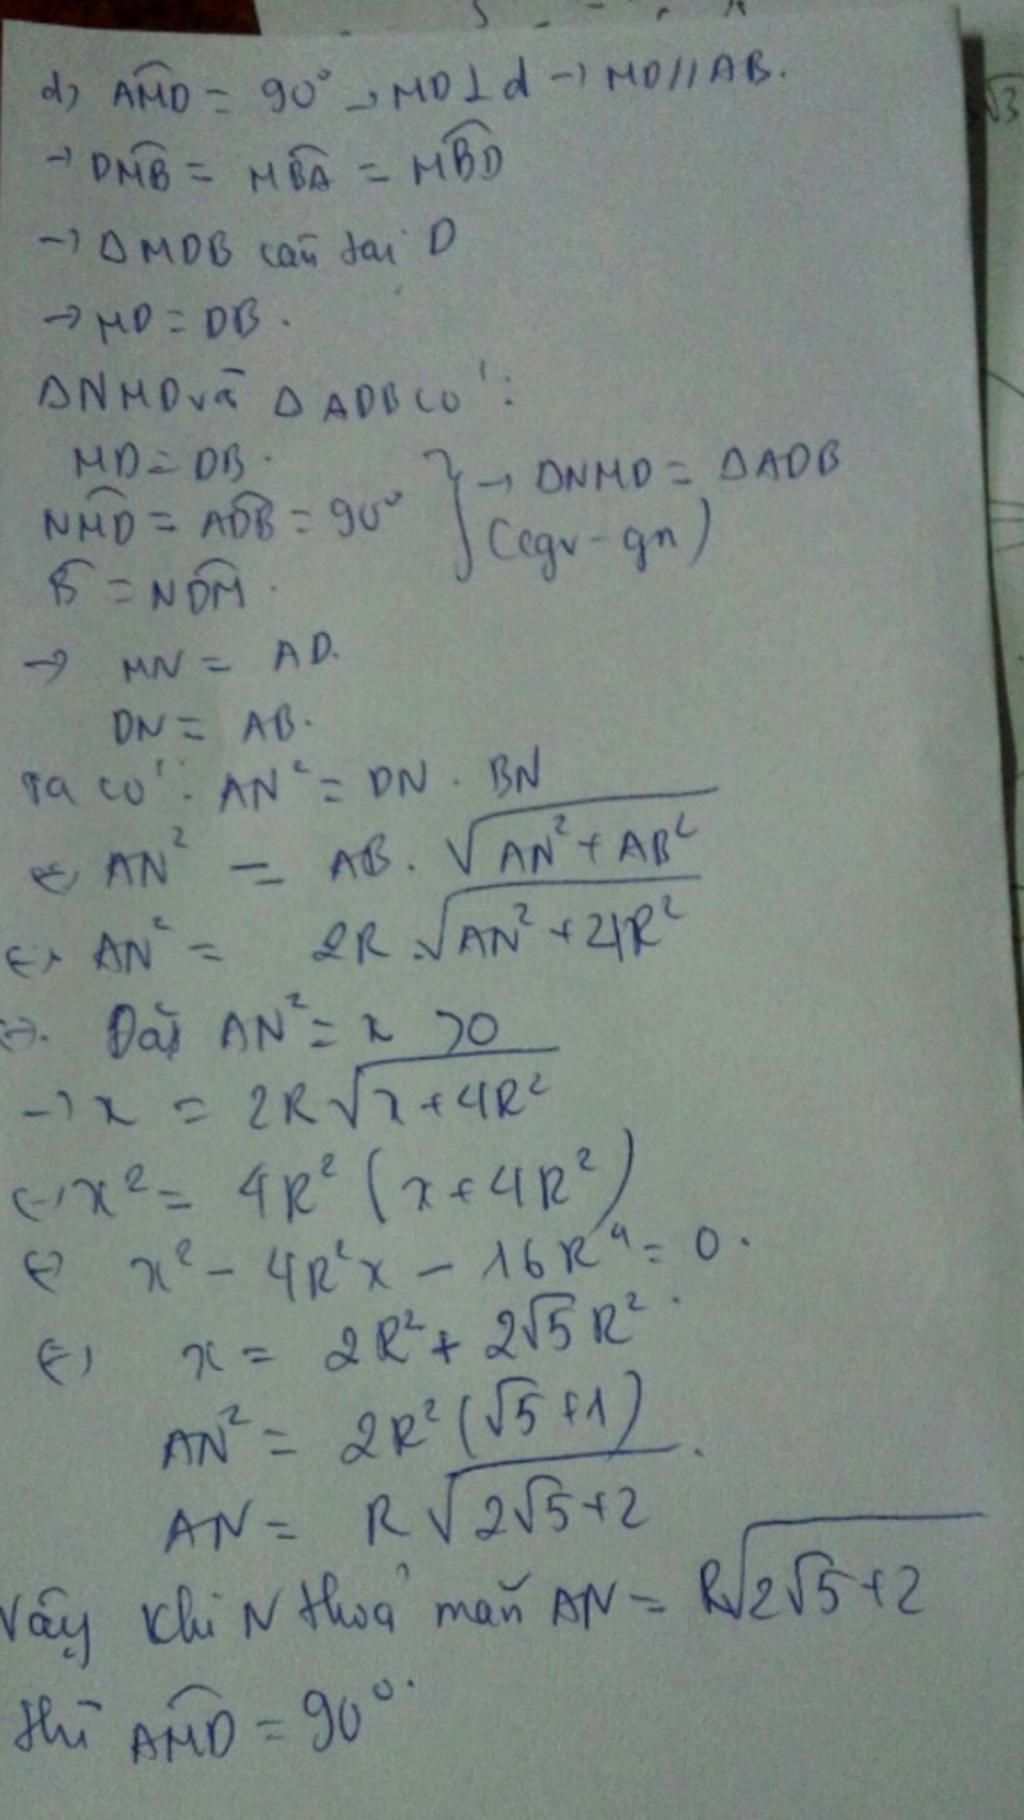 d, AMD = 90° → MD ⊥ d → MD // AB.
→ DMB = MBA = MBD
→ ΔMDB cân tại D
→ MD = DB.
ΔNMD và ΔADB có:
MD = DB.
NMD = ADB = 90° } → ΔNMD = ΔADB
B = NDM. (cgv - gn)
→ MN = AD.
DN = AB.
Ta có: AN² = DN . BN
⇔ AN² = AB. √AN² + AB²
⇔ AN² = 2R . √AN² + 4R²
⇔. Đặt AN² = x > 0
→ x = 2R √x + 4R²
⇔ x² = 4R² (x + 4R²)
⇔ x² - 4R²x - 16R⁴ = 0.
⇔ x = 2R² + 2√5 R².
AN² = 2R² (√5 + 1)
AN = R √2√5 + 2.
Vậy khi N thoả mãn AN = R√2√5 + 2
thì AMD = 90°.